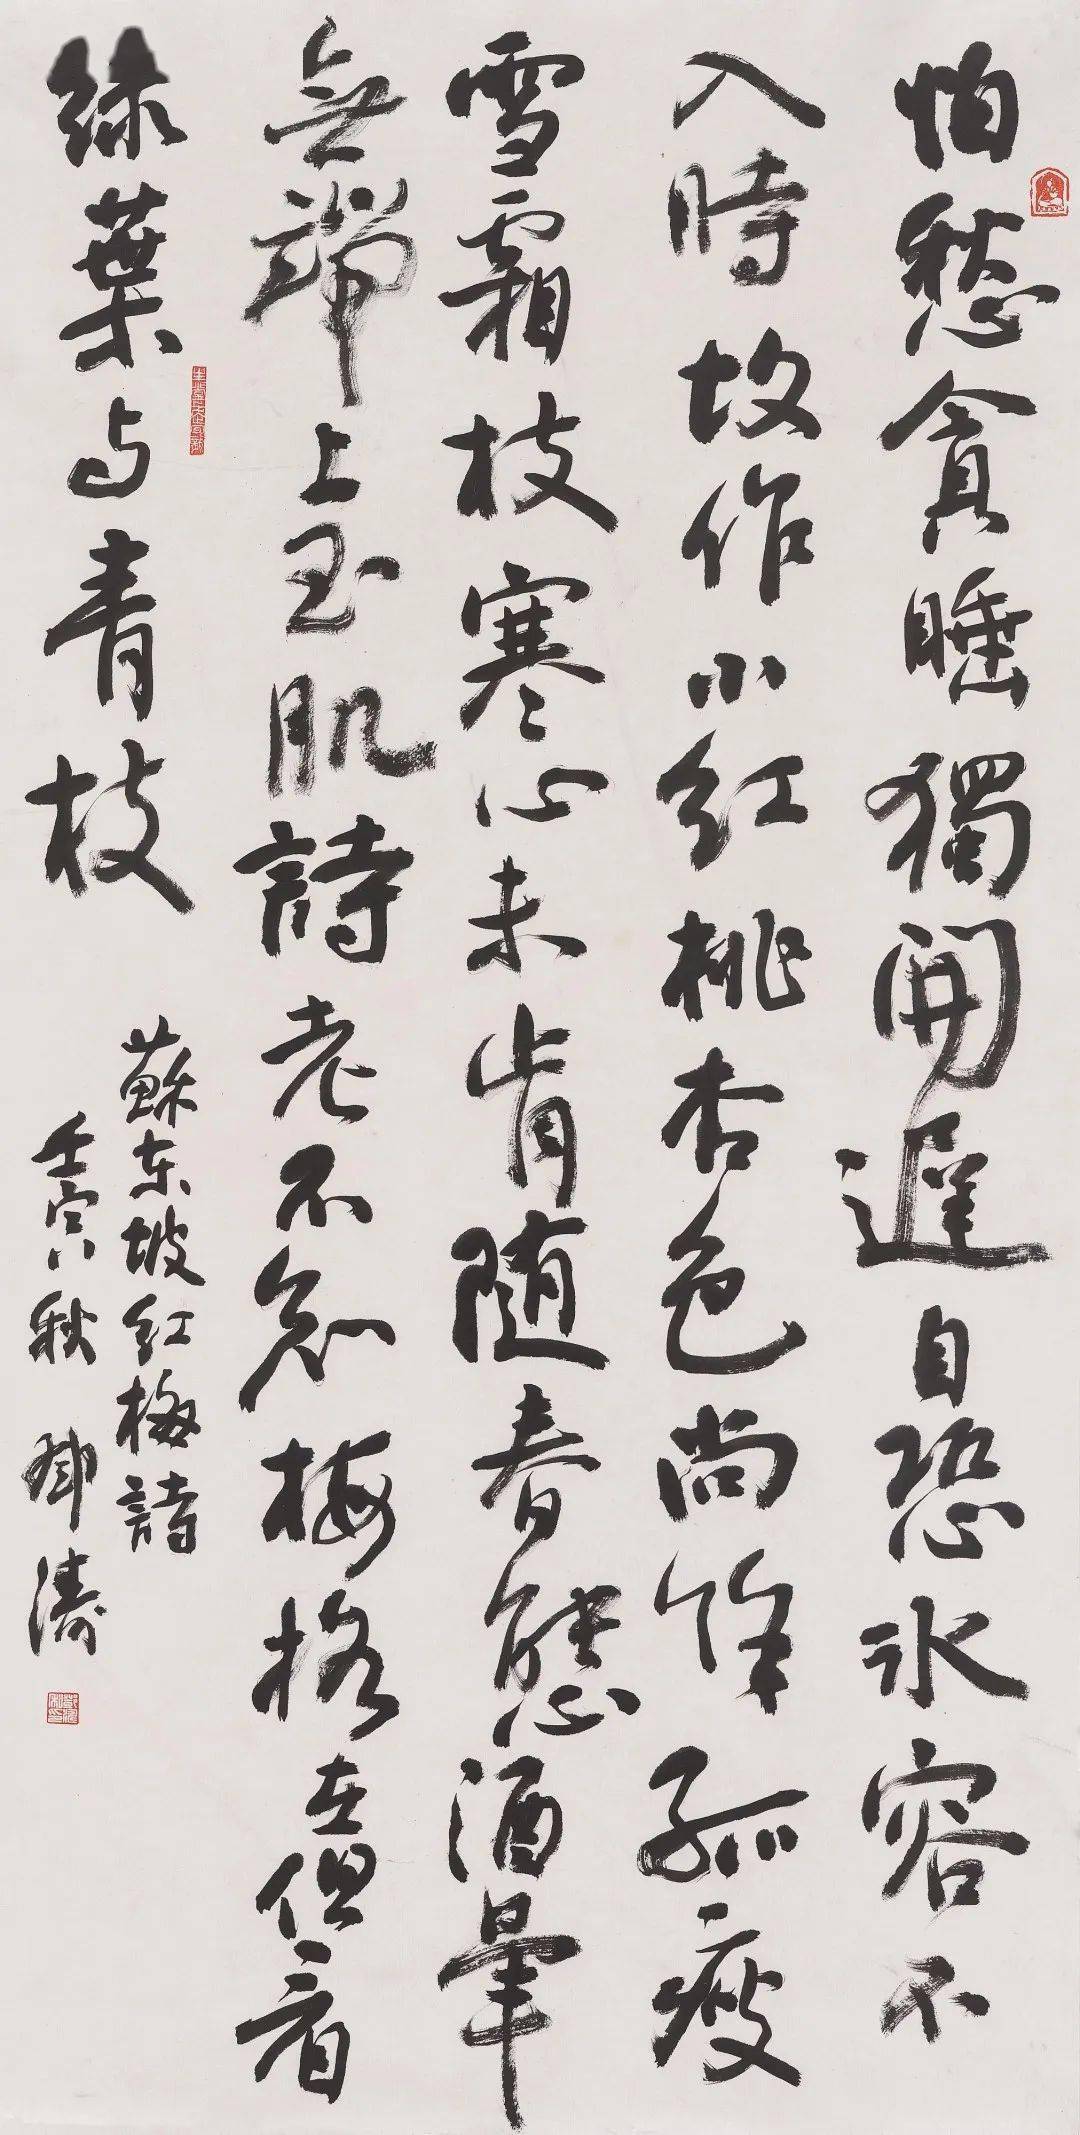 怕愁貪睡獨開遲自恐冰容不
入時故作小紅桃杏色尚餘孤瘦
雪霜枝寒心未肯随春態酒暈
無端上玉肌詩老不知梅格在但看
緑葉与青枝
蘇东坡红梅詩
壬寅秋 鄧濤